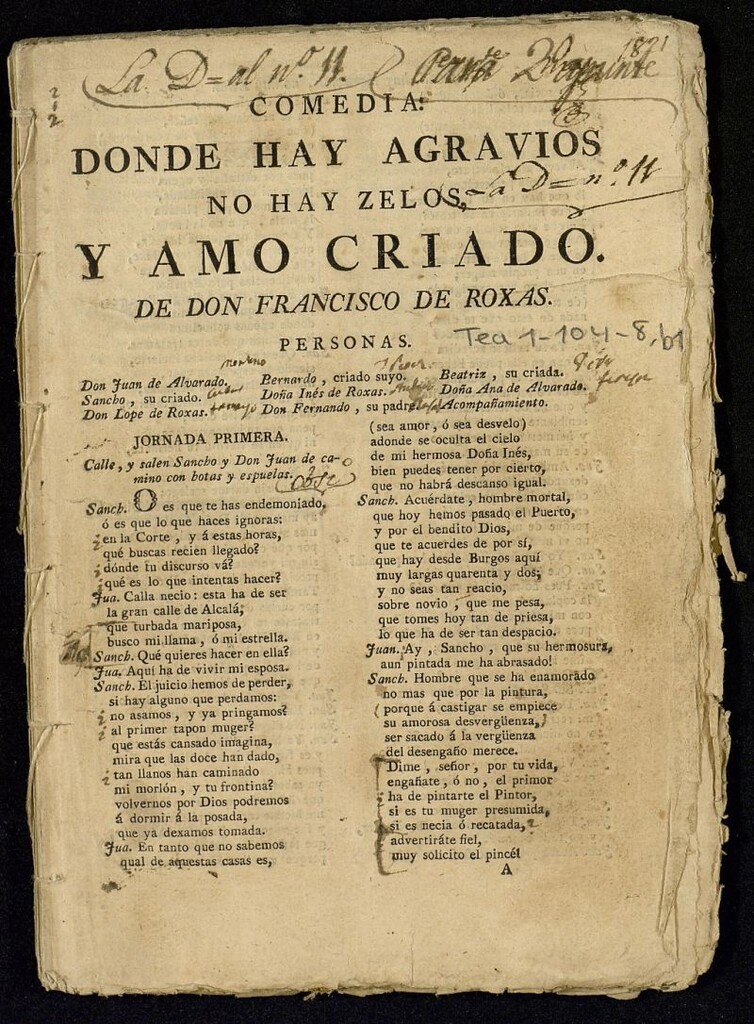 La D=al nº 11.
1821
COMEDIA:
DONDE HAY AGRAVIOS
NO HAY ZELOS,
La D= nº 11
Y AMO CRIADO.
DE DON FRANCISCO DE ROXAS.
PERSONAS.
Tea 1-104-8, b1
Don Juan de Alvarado.
Sancho, su criado.
Don Lope de Roxas.
Bernardo, criado suyo.
Doña Inés de Roxas.
Don Fernando, su padre.
Beatriz, su criada.
Doña Ana de Alvarado.
Acompañamiento.
JORNADA PRIMERA.
Calle, y salen Sancho y Don Juan de ca-
mino con botas y espuelas.
Sanch. O es que te has endemoniado,
ó es que lo que haces ignoras:
¿en la Corte, y á estas horas,
qué buscas recien llegado?
¿dónde tu discurso vá?
¿qué es lo que intentas hacer?
Jua. Calla necio: esta ha de ser
la gran calle de Alcalá;
que turbada mariposa,
busco mi llama, ó mi estrella.
Sanch. Qué quieres hacer en ella?
Jua. Aquí ha de vivir mi esposa.
Sanch. El juicio hemos de perder,
si hay alguno que perdamos:
¿no asamos, y ya pringamos?
¿al primer tapon muger?
que estás cansado imagina,
mira que las doce han dado,
¿tan llanos han caminado
mi morlón, y tu frontina?
volvernos por Dios podremos
á dormir á la posada,
que ya dexamos tomada.
Jua. En tanto que no sabemos
qual de aquestas casas es,
(sea amor, ó sea desvelo)
adonde se oculta el cielo
de mi hermosa Doña Inés,
bien puedes tener por cierto,
que no habrá descanso igual.
Sanch. Acuérdate, hombre mortal,
que hoy hemos pasado el Puerto,
y por el bendito Dios,
que te acuerdes de por sí,
que hay desde Burgos aquí
muy largas quarenta y dos;
y no seas tan reacio,
sobre novio, que me pesa,
que tomes hoy tan de priesa,
lo que ha de ser tan despacio.
Juan. Ay, Sancho, que su hermosura,
aun pintada me ha abrasado!
Sanch. Hombre que se ha enamorado
no mas que por la pintura,
(porque á castigar se empiece
su amorosa desvergüenza,)
ser sacado á la vergüenza
del desengaño merece.
Dime, señor, por tu vida,
engañate, ó no, el primor
¿ha de pintarte el Pintor,
si es tu muger presumida,
si es necia ó recatada,?
advertiráte fiel,
muy solicito el pincél
A